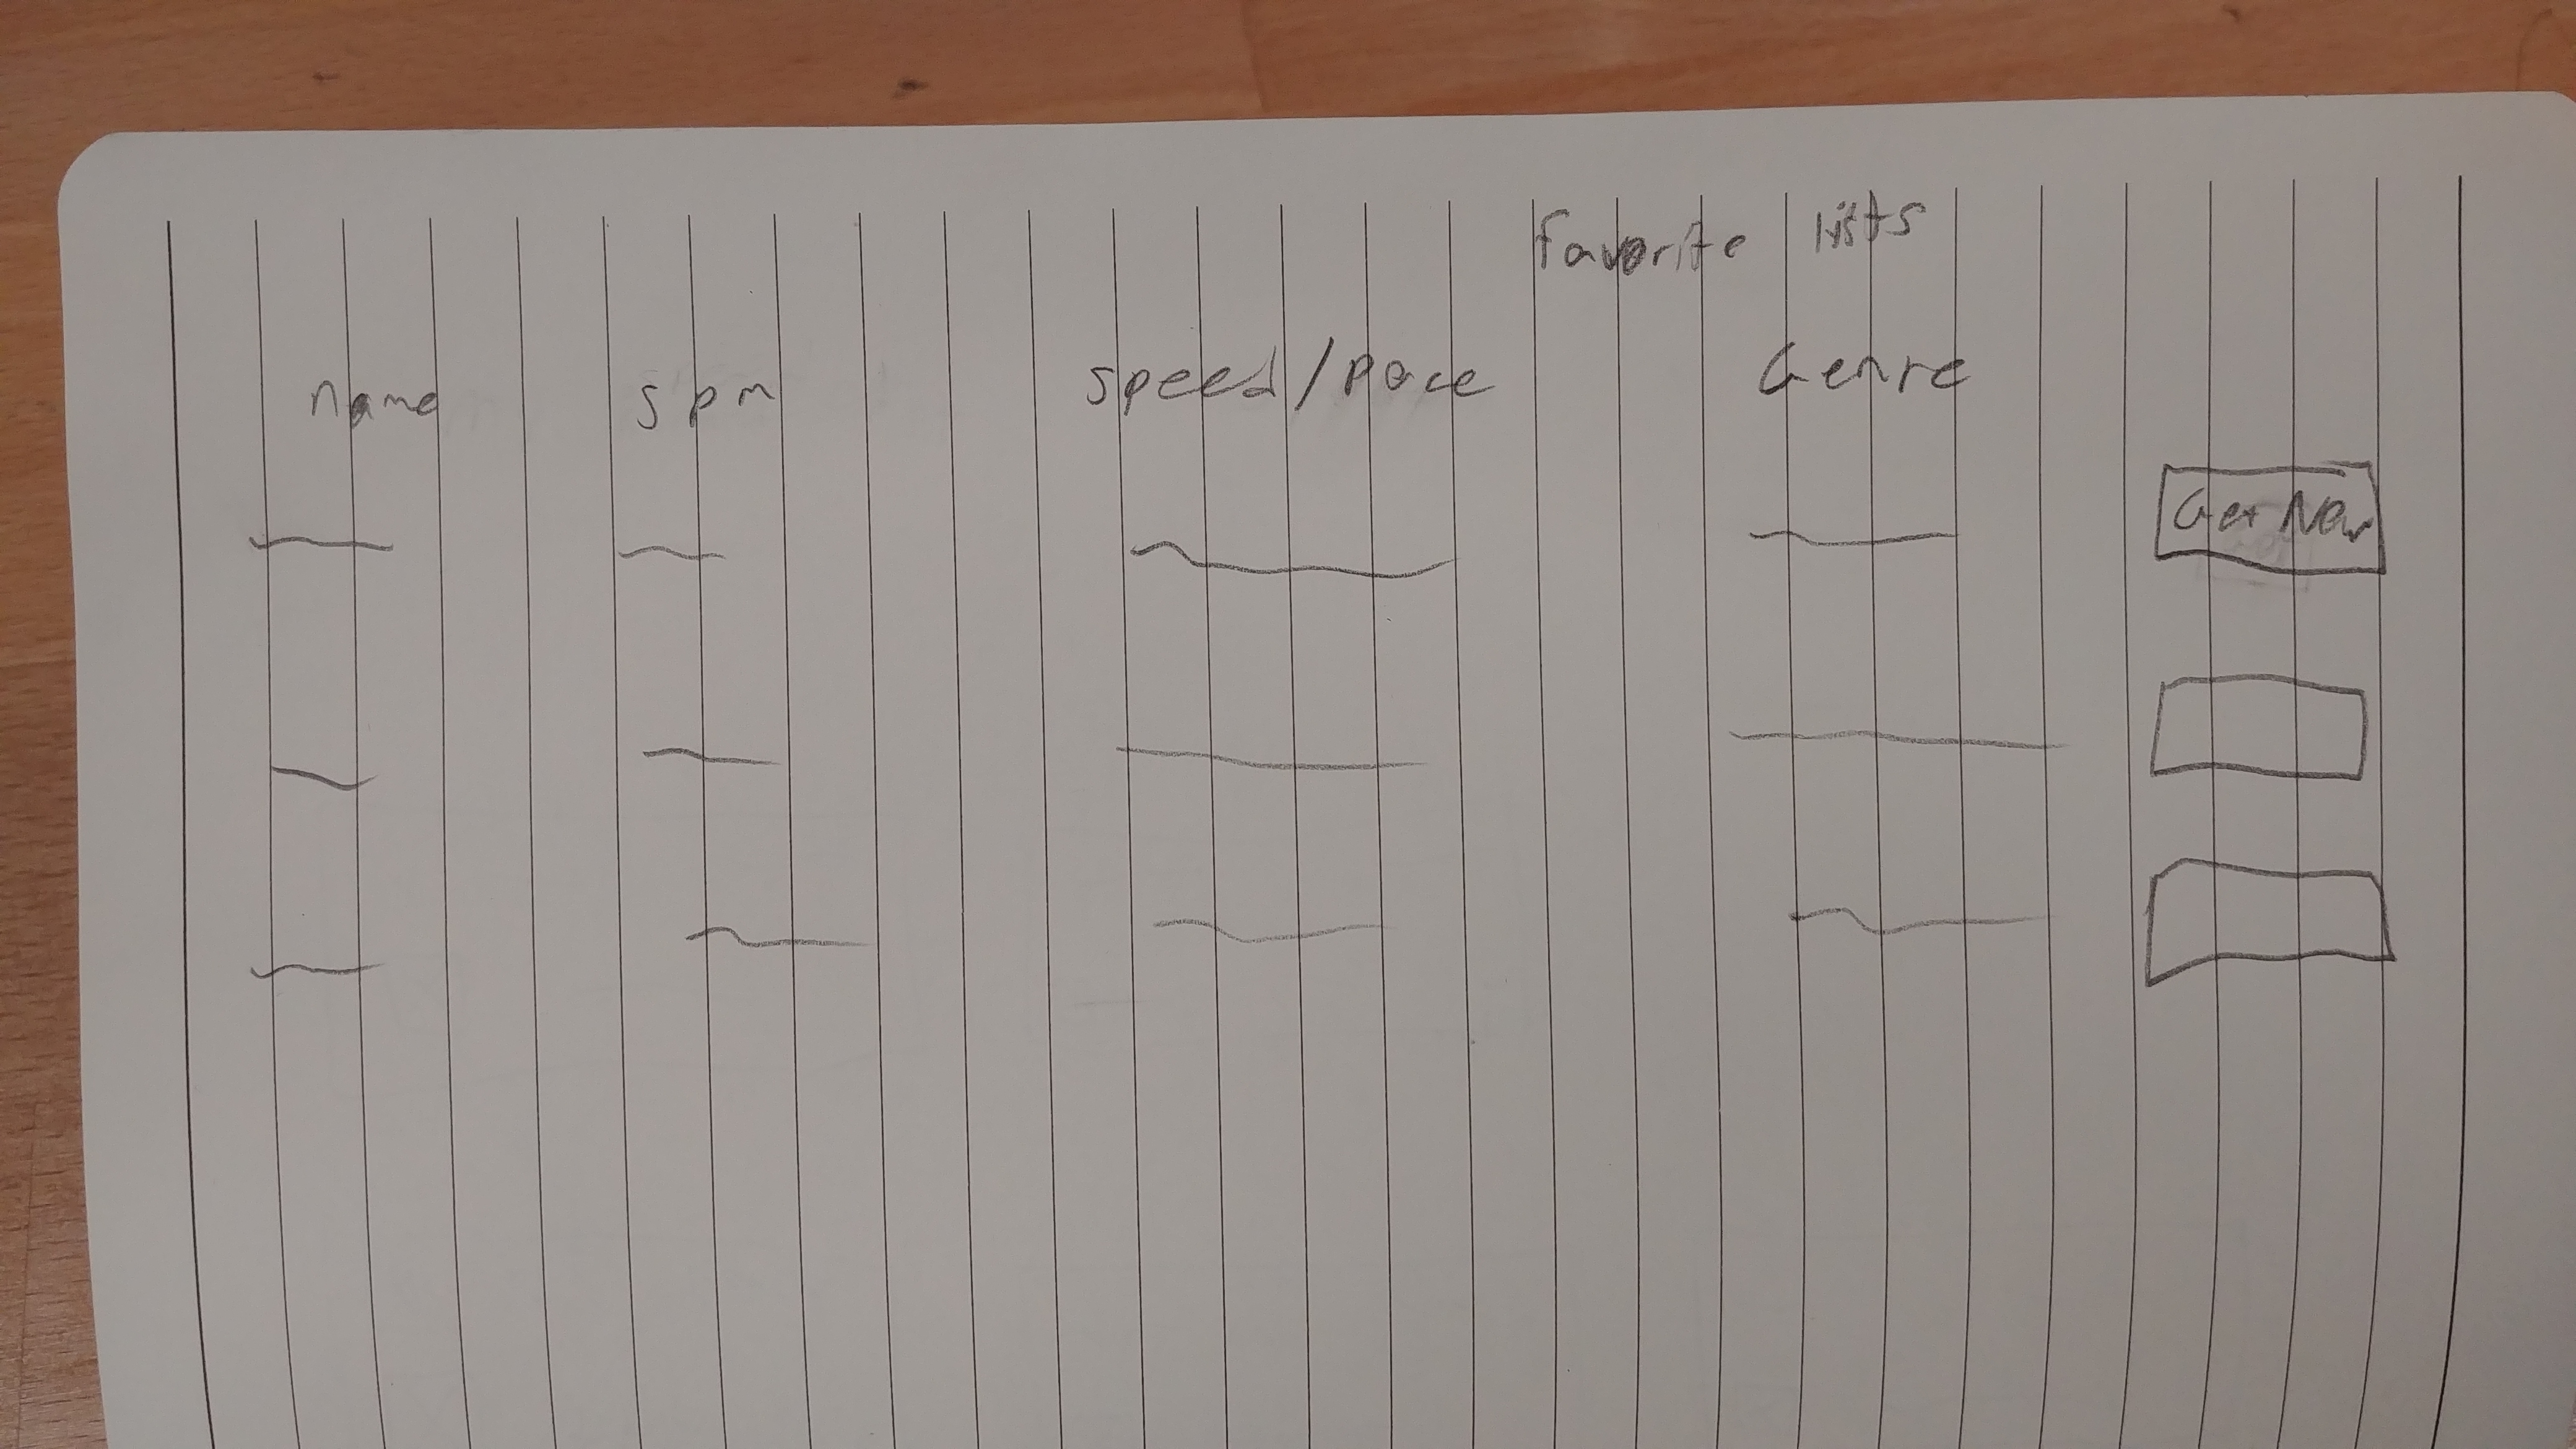 favorite lists
name spm speed/pace Genre
Get New